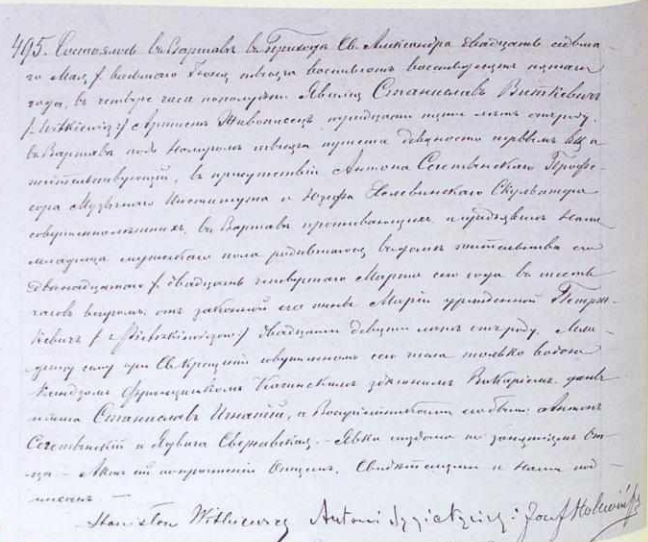 495. Состоялось въ Варшавѣ въ Приходѣ Св. Александра двадцать седьма-
го Мая / восьмаго Іюня тысяча восемьсотъ восемьдесятъ пятаго
года, въ четыре часа пополудни. Явился Станиславъ Виткевичъ
/: Witkiewicz :/ Артистъ Живописецъ тридцати лѣтъ отъ роду.
въ Варшавѣ подъ номеромъ тысяча шестьсотъ девяносто первымъ
жительствующій, въ присутствіи Антона Сыгетынскаго Профес-
сора Музыкальнаго Института и Юзефа Холевинскаго Скульптора
совершеннолѣтнихъ, въ Варшавѣ проживающихъ и предъявилъ Намъ
младенца мужескаго пола родившагося въ домѣ жительства его
двѣнадцатаго / двадцать четвертаго Марта сего года въ шесть
часовъ вечеромъ, отъ законной его жены Маріи урожденной Петрж-
кевичъ /: Pietrzkiewicz :/ двадцати девяти лѣтъ отъ роду. Мла-
денцу сему при Св. Крещеніи совершенномъ сего числа только водою
Ксендзомъ Францишкомъ здѣшнимъ Викаріемъ, даны
имена Станиславъ Игнатій, а Воспріемниками его были: Антонъ
Сыгетынскій и Ядвига — Явка опоздана по занятіямъ От-
ца. — Актъ сей по прочтеніи Отцемъ, Свидѣтелями и Нами под-
писанъ. —
Stanisław Witkiewicz Antoni Sygietyński Józef Holewiński